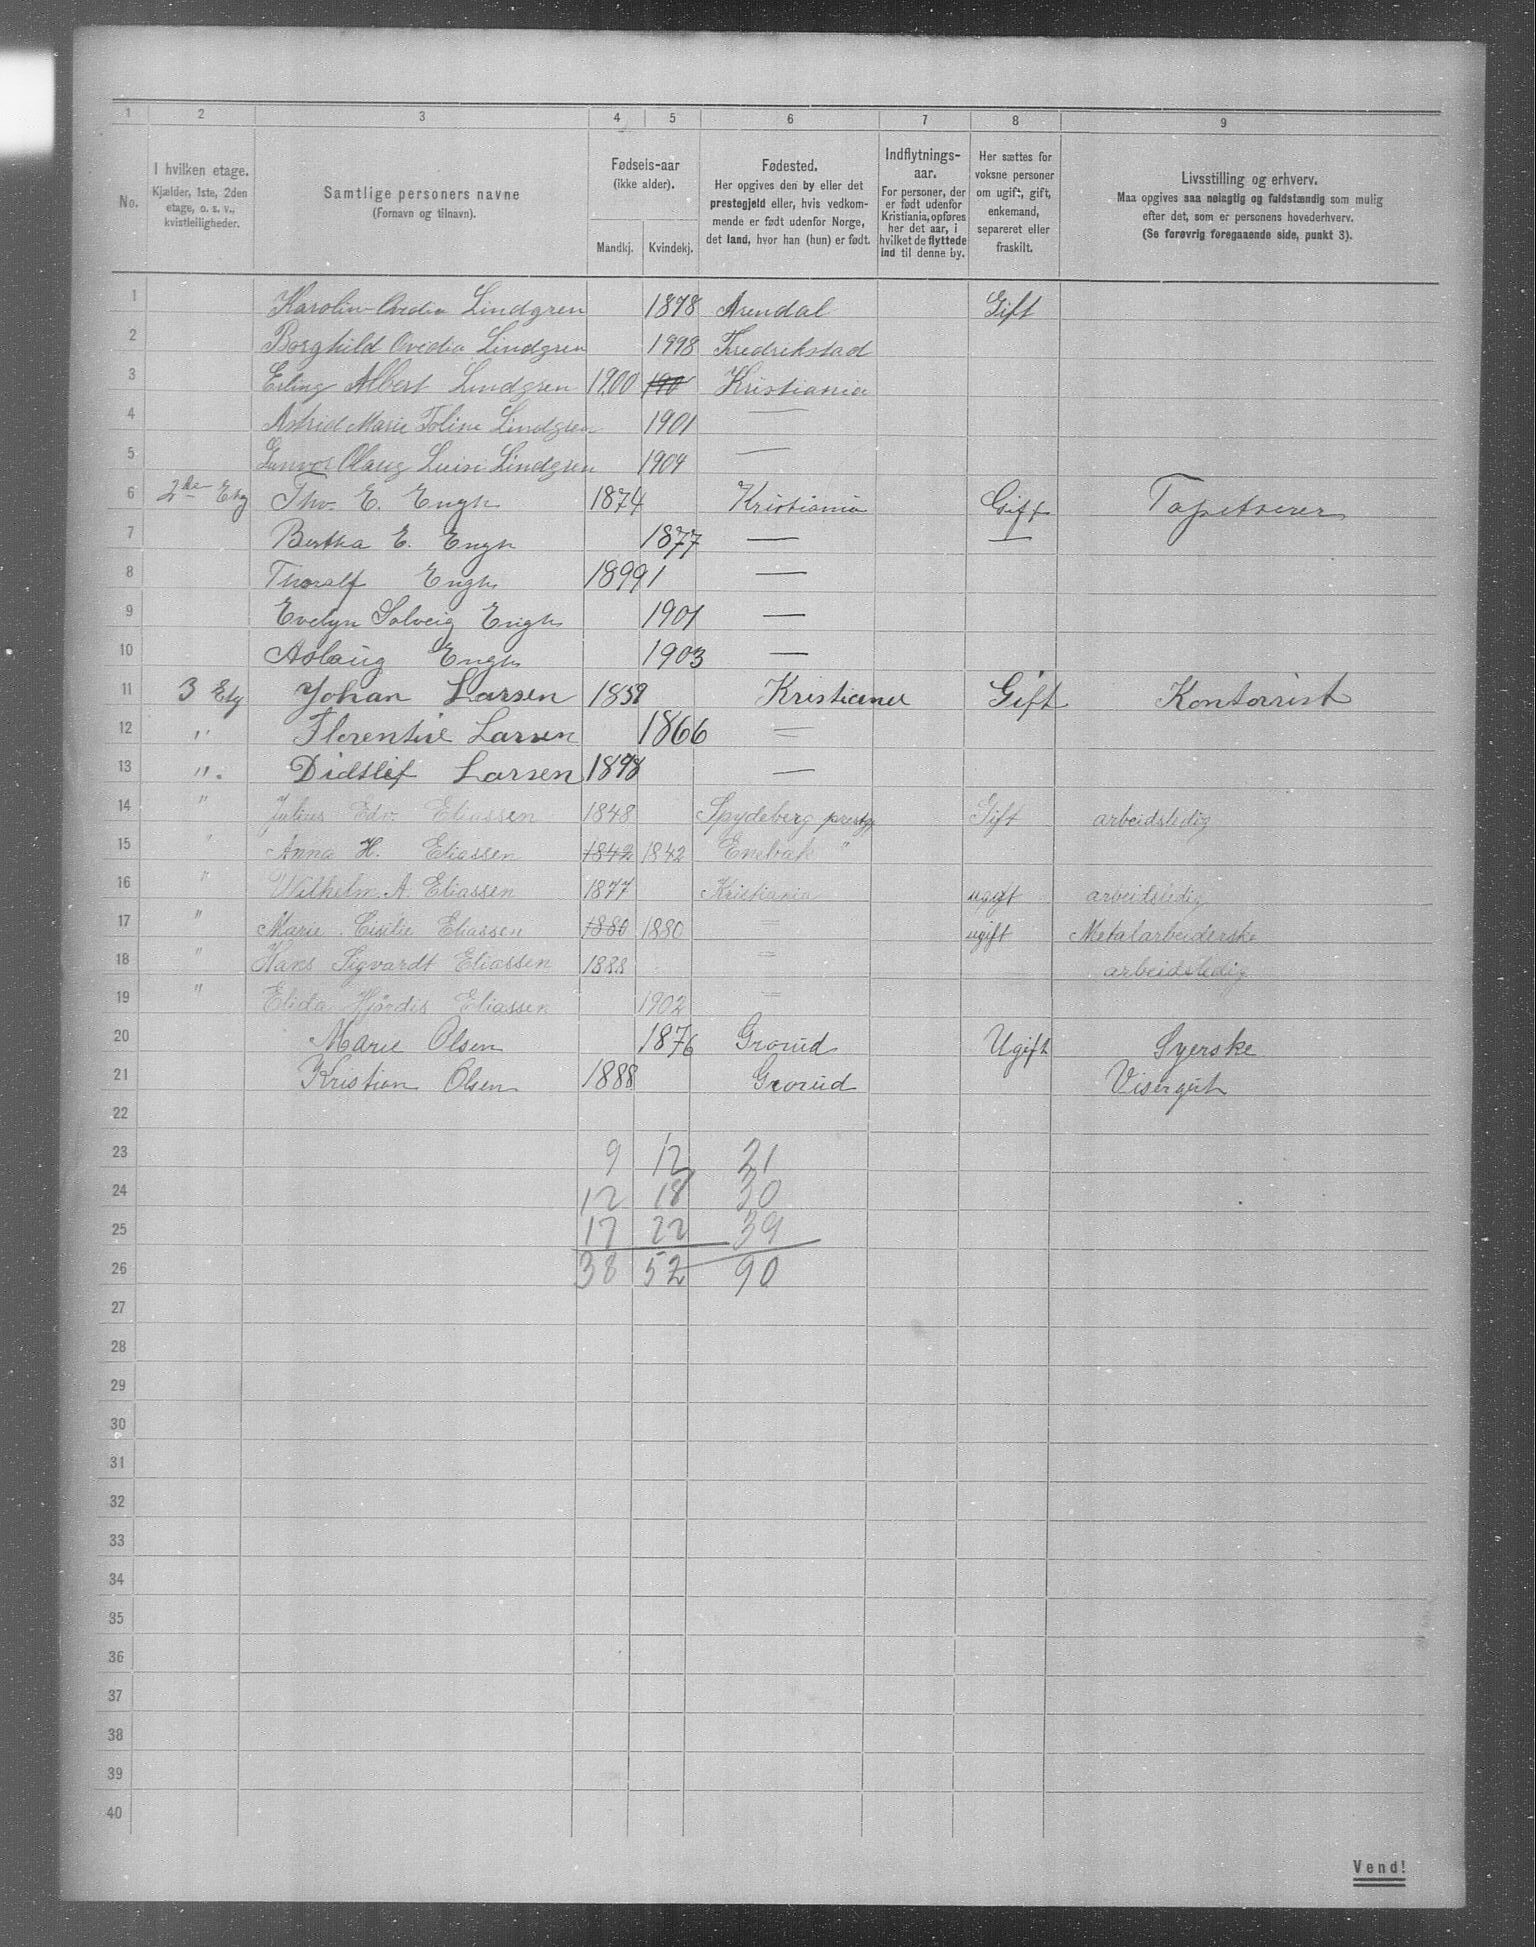 1 2 3 4 5 6 7 8 9
No.
I hvilken etage.
Kjælder, 1ste, 2den
etage, o. s. v.,
kvistleiligheder.
Samtlige personers navne
(Fornavn og tilnavn).
Fødsels-aar
(ikke alder).
Mandkj. Kvindekj.
Fødested.
Her opgives den by eller det
prestegjeld eller, hvis vedkom-
mende er født udenfor Norge,
det land, hvor han (hun) er født.
Indflytnings-
aar.
For personer, der
er født udenfor
Kristiania, opføres
her det aar, i
hvilket de flyttede
ind til denne by.
Her sættes for
voksne personer
om ugift, gift,
enkemand,
separeret eller
fraskilt.
Livsstilling og erhverv.
Maa opgives saa nøiagtig og fuldstændig som mulig
efter det, som er personens hovederhverv.
(Se forøvrig foregaaende side, punkt 3).
1 Karolin Ovedia Lindgren 1878 Arendal Gift
2 Borghild Ovedia Lindgren 1998 Fredrikstad
3 Erling Albert Lindgren 1900 190 Kristiania
4 Astrid Marie Toline Lindgren 1901 —
5 Gunvor Olaug Luise Lindgren 1904 —
6 2den Etg Thv. E. Engh 1874 Kristiania Gift Tapetserer
7 Bertha E. Engh 1877 — —
8 Thoralf Engh 1899 1 —
9 Evelyn Solveig Engh 1901 —
10 Aslaug Engh 1903 —
11 3 Etg Johan Larsen 1858 Kristiania Gift Kontorrist
12 " Florentine Larsen 1866 =
13 ". Didtlef Larsen 1898 —
14 " Julius Edv. Eliassen 1848 Spydeberg prestgj Gift arbeidsledig
15 " Anna H. Eliassen 1842 1842 Enebak "
16 " Wilhelm. A. Eliassen 1877 Kristiania ugift arbeidsledig
17 " Marie Cisilie Eliassen 1880 1880 = ugift Metalarbeiderske
18 " Hans Sigvardt Eliassen 1888 = arbeidsledig
19 " Elida Hjørdis Eliassen 1902 =
20 Marie Olsen 1876 Grorud Ugift Syerske
21 Kristian Olsen 1888 Grorud Visergut
22
23 9 12 21
24 12 18 30
25 17 22 39
26 38 52 90
27
28
29
30
31
32
33
34
35
36
37
38
39
40
Vend!